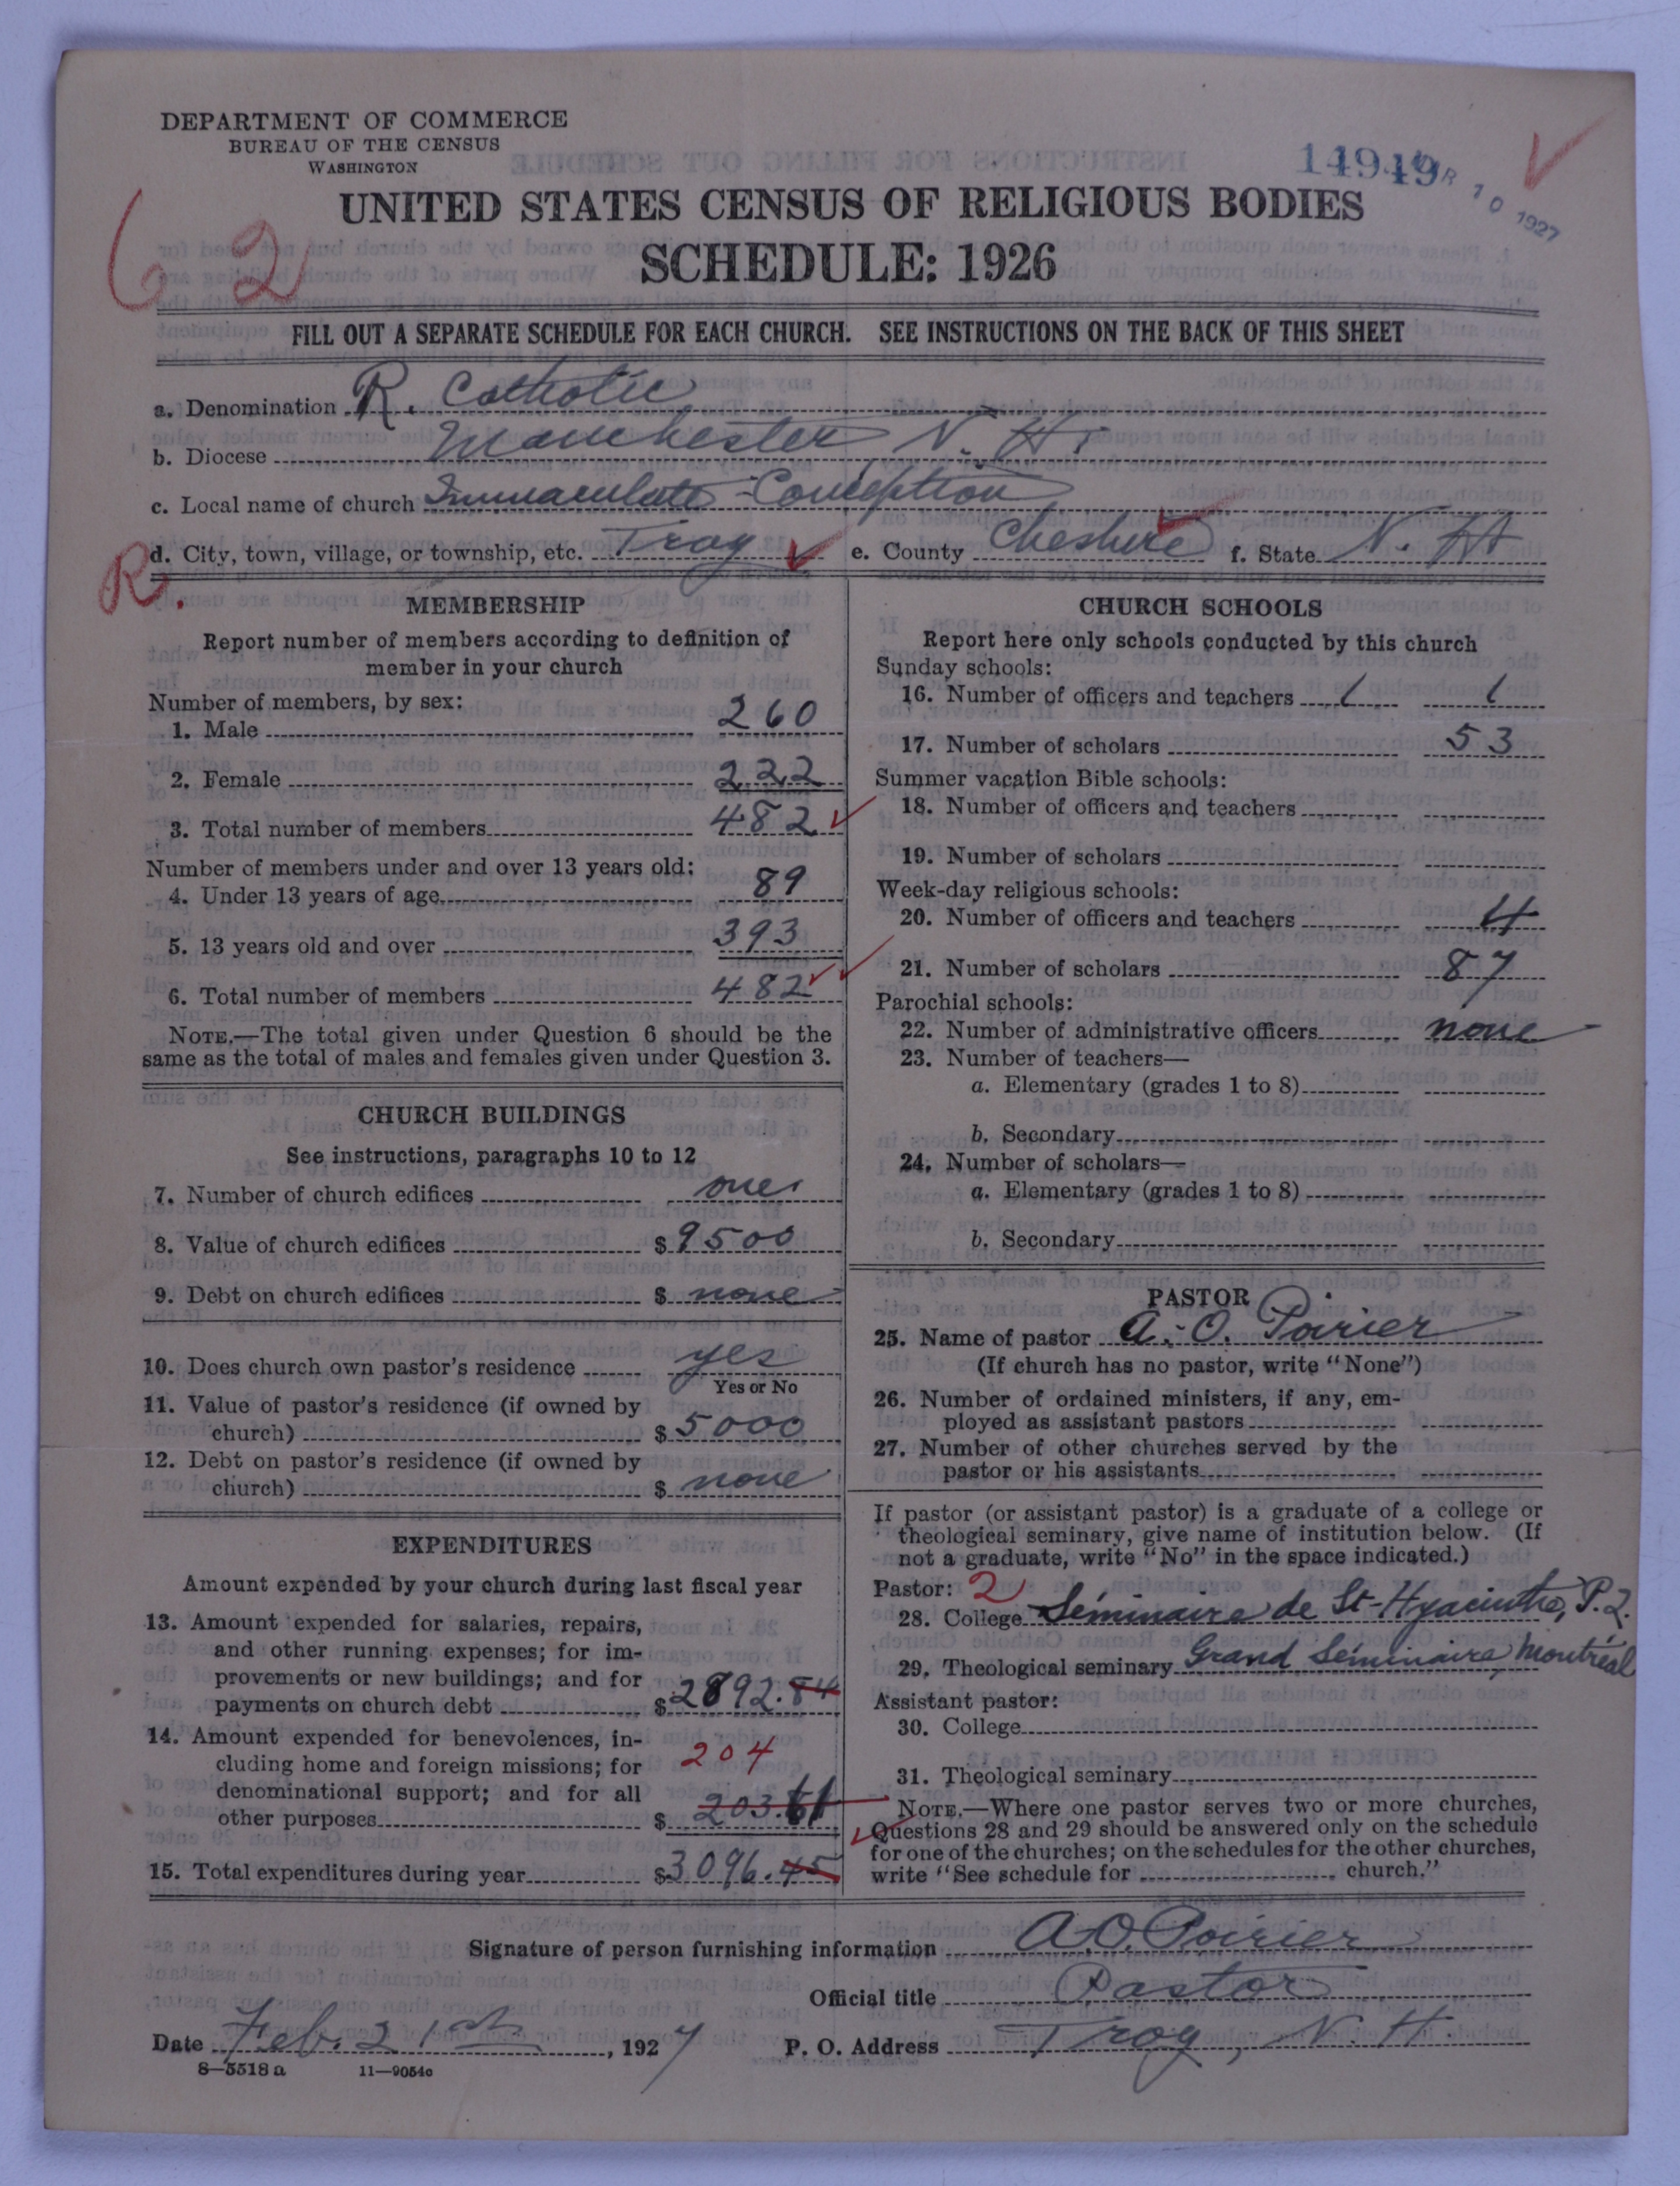 DEPARTMENT OF COMMERCE
BUREAU OF THE CENSUS
WASHINGTON
14949
10 1927
UNITED STATES CENSUS OF RELIGIOUS BODIES
SCHEDULE: 1926
62
FILL OUT A SEPARATE SCHEDULE FOR EACH CHURCH. SEE INSTRUCTIONS ON THE BACK OF THIS SHEET
a. Denomination R. Catholic
b. Diocese Manchester N. H.
c. Local name of church Immaculate-Conception
d. City, town, village, or township, etc. Troy e. County Cheshire f. State N. H
R.
MEMBERSHIP
Report number of members according to definition of
member in your church
Number of members, by sex:
1. Male 260
2. Female 222
3. Total number of members 482
Number of members under and over 13 years old:
4. Under 13 years of age 89
5. 13 years old and over 393
6. Total number of members 482
NOTE.—The total given under Question 6 should be the
same as the total of males and females given under Question 3.
CHURCH BUILDINGS
See instructions, paragraphs 10 to 12
7. Number of church edifices one
8. Value of church edifices $ 9500
9. Debt on church edifices $ none
10. Does church own pastor's residence yes
Yes or No
11. Value of pastor's residence (if owned by
church) $ 5000
12. Debt on pastor's residence (if owned by
church) $ none
EXPENDITURES
Amount expended by your church during last fiscal year
13. Amount expended for salaries, repairs,
and other running expenses; for im-
provements or new buildings; and for
payments on church debt $ 2892.84
14. Amount expended for benevolences, in-
cluding home and foreign missions; for 204
denominational support; and for all
other purposes $ 203.61
15. Total expenditures during year $ 3096.45
CHURCH SCHOOLS
Report here only schools conducted by this church
Sunday schools:
16. Number of officers and teachers 1 1
17. Number of scholars 53
Summer vacation Bible schools:
18. Number of officers and teachers
19. Number of scholars
Week-day religious schools:
20. Number of officers and teachers 4
21. Number of scholars 87
Parochial schools:
22. Number of administrative officers none
23. Number of teachers—
a. Elementary (grades 1 to 8)
b. Secondary
24. Number of scholars—
a. Elementary (grades 1 to 8)
b. Secondary
PASTOR
25. Name of pastor A. O. Poirier
(If church has no pastor, write "None")
26. Number of ordained ministers, if any, em-
ployed as assistant pastors
27. Number of other churches served by the
pastor or his assistants
If pastor (or assistant pastor) is a graduate of a college or
theological seminary, give name of institution below. (If
not a graduate, write "No" in the space indicated.)
Pastor: 2
28. College Séminaire de St-Hyacinthe, P.Q.
29. Theological seminary Grand Séminaire, Montréal
Assistant pastor:
30. College
31. Theological seminary
NOTE.—Where one pastor serves two or more churches,
Questions 28 and 29 should be answered only on the schedule
for one of the churches; on the schedules for the other churches,
write "See schedule for church."
Signature of person furnishing information A.O. Poirier
Official title Pastor
Date Feb. 21st, 1927 P. O. Address Troy, N. H.
8—5518 a 11—9054c